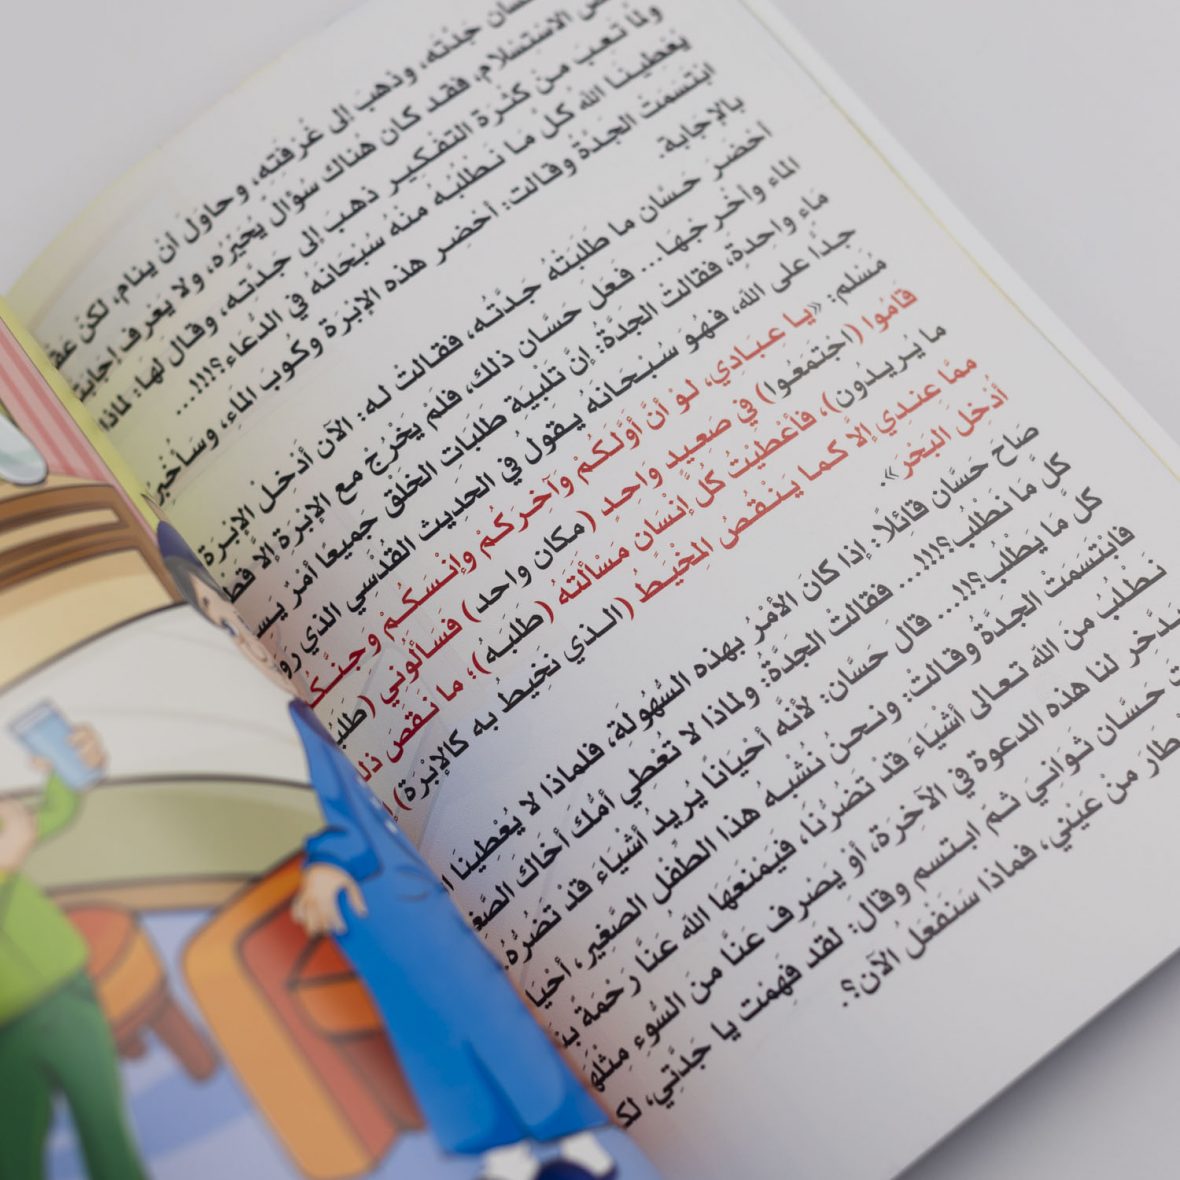 حسان جدته، وذهبَ الى غُرفَتِه، وحاوَلَ أن ينام، لكن
الاستسلام، فقد كان هُناك سُؤالٌ يُحَيّرُه، ولا يَعْرف
ولمّا تعبَ من كثْرَة التفْكير ذهبَ الى جَدَّته، وقالَ لهَا: لماذا
يُعْطينَا اللهُ كلَّ ما نَطْلبُهُ منهُ سُبْحانَهُ في الدُّعاء؟!!!...
ابْتسَمَت الجَدَّةُ وقالت: أحْضِر هذه الإبْرة وكُوب الماء،
بالإجَابة.
أحْضَرَ حَسَّان ما طَلَبَتْهُ جدَّتُه، فقالتْ له: الآن أدْخِل الإبْرة
الماء وأخْرجْهَا... فعَل حَسَّان ذلك، فلمْ يَخْرُج مع الإبْرة إلَّا
ماء واحِدة، فقالتْ الجَدَّةُ: إنَّ تلْبية طلبَات الخلْق جَميعا أمرٌ
جدًّا على الله، فهُوَ سُبْحَانَهُ يقولُ في الحَديث القُدْسي الذي
مُسْلم: «يا عبَادي، لوْ أنَّ أوَّلَكمْ وآخِركُمْ وإنْسكُمْ
قَامُوا (اجْتَمَعُوا) في صَعيد واحدٍ (مكان واحد) فَسَألُوني
ما يُريدُون)، فأعْطيْتُ كلَّ إنْسان مَسْألتَهُ (طلبَهُ)؛ ما نقَصَ
ممَّا عندي إلَّا كما ينْقُصُ المِخْيَطُ (الذي نَخيطُ به كالإبْرَة)
أدْخلَ البَحْر».
صَاحَ حَسَّان قائلًا: إذا كان الأمْرُ بهذه السُّهُولَة، فلماذا لا يُعْطِينَا
كلَّ مَا نَطْلُب؟!!!... فقالتْ الجَدَّةُ: ولماذا لا تُعْطي أمُّك أخاكَ
كلَّ مَا يطْلب؟!!... قالَ حَسَّان: لأنَّه أحْيَانًا يُريدُ أشْياء قدْ تضُرُّه.
فابْتسَمَتْ الجَدَّةُ وقالت: ونحنُ نُشْبهُ هذا الطِّفْل الصَّغِير،
نَطْلبُ من الله تعالى أشْيَاء قدْ تضُرُّنا، فيَمْنعهَا اللهُ عَنَّا رَحْمةً
لنا هذه الدعوة في الآخِرَة، أوْ يصْرف عَنَّا من السُّوءِ
حَسَّان ثَوَانيَ ثمَّ ابتسم وقالَ: لقد فَهِمْت يا جَدَّتي،
طارَ منْ عَيْني، فماذا سَنَفْعَلُ الآن؟.